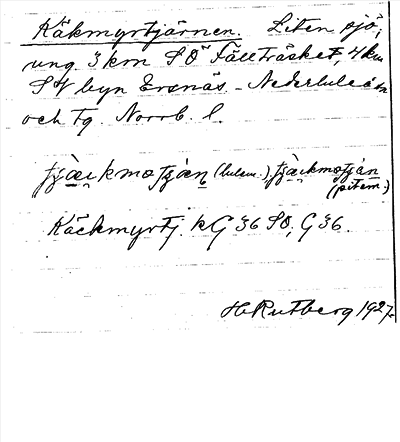 Käkmyrtjärnen. Liten sjö,
ung 3 km SO Fällträsket, 4 km
SV byn Ersnäs - Nederluleå sn
och tg. Norrb. l.
(lulem.)
(pitem.)
Käckmyrtj. kG 36 SO, G 36.
H. Rutberg 1927.